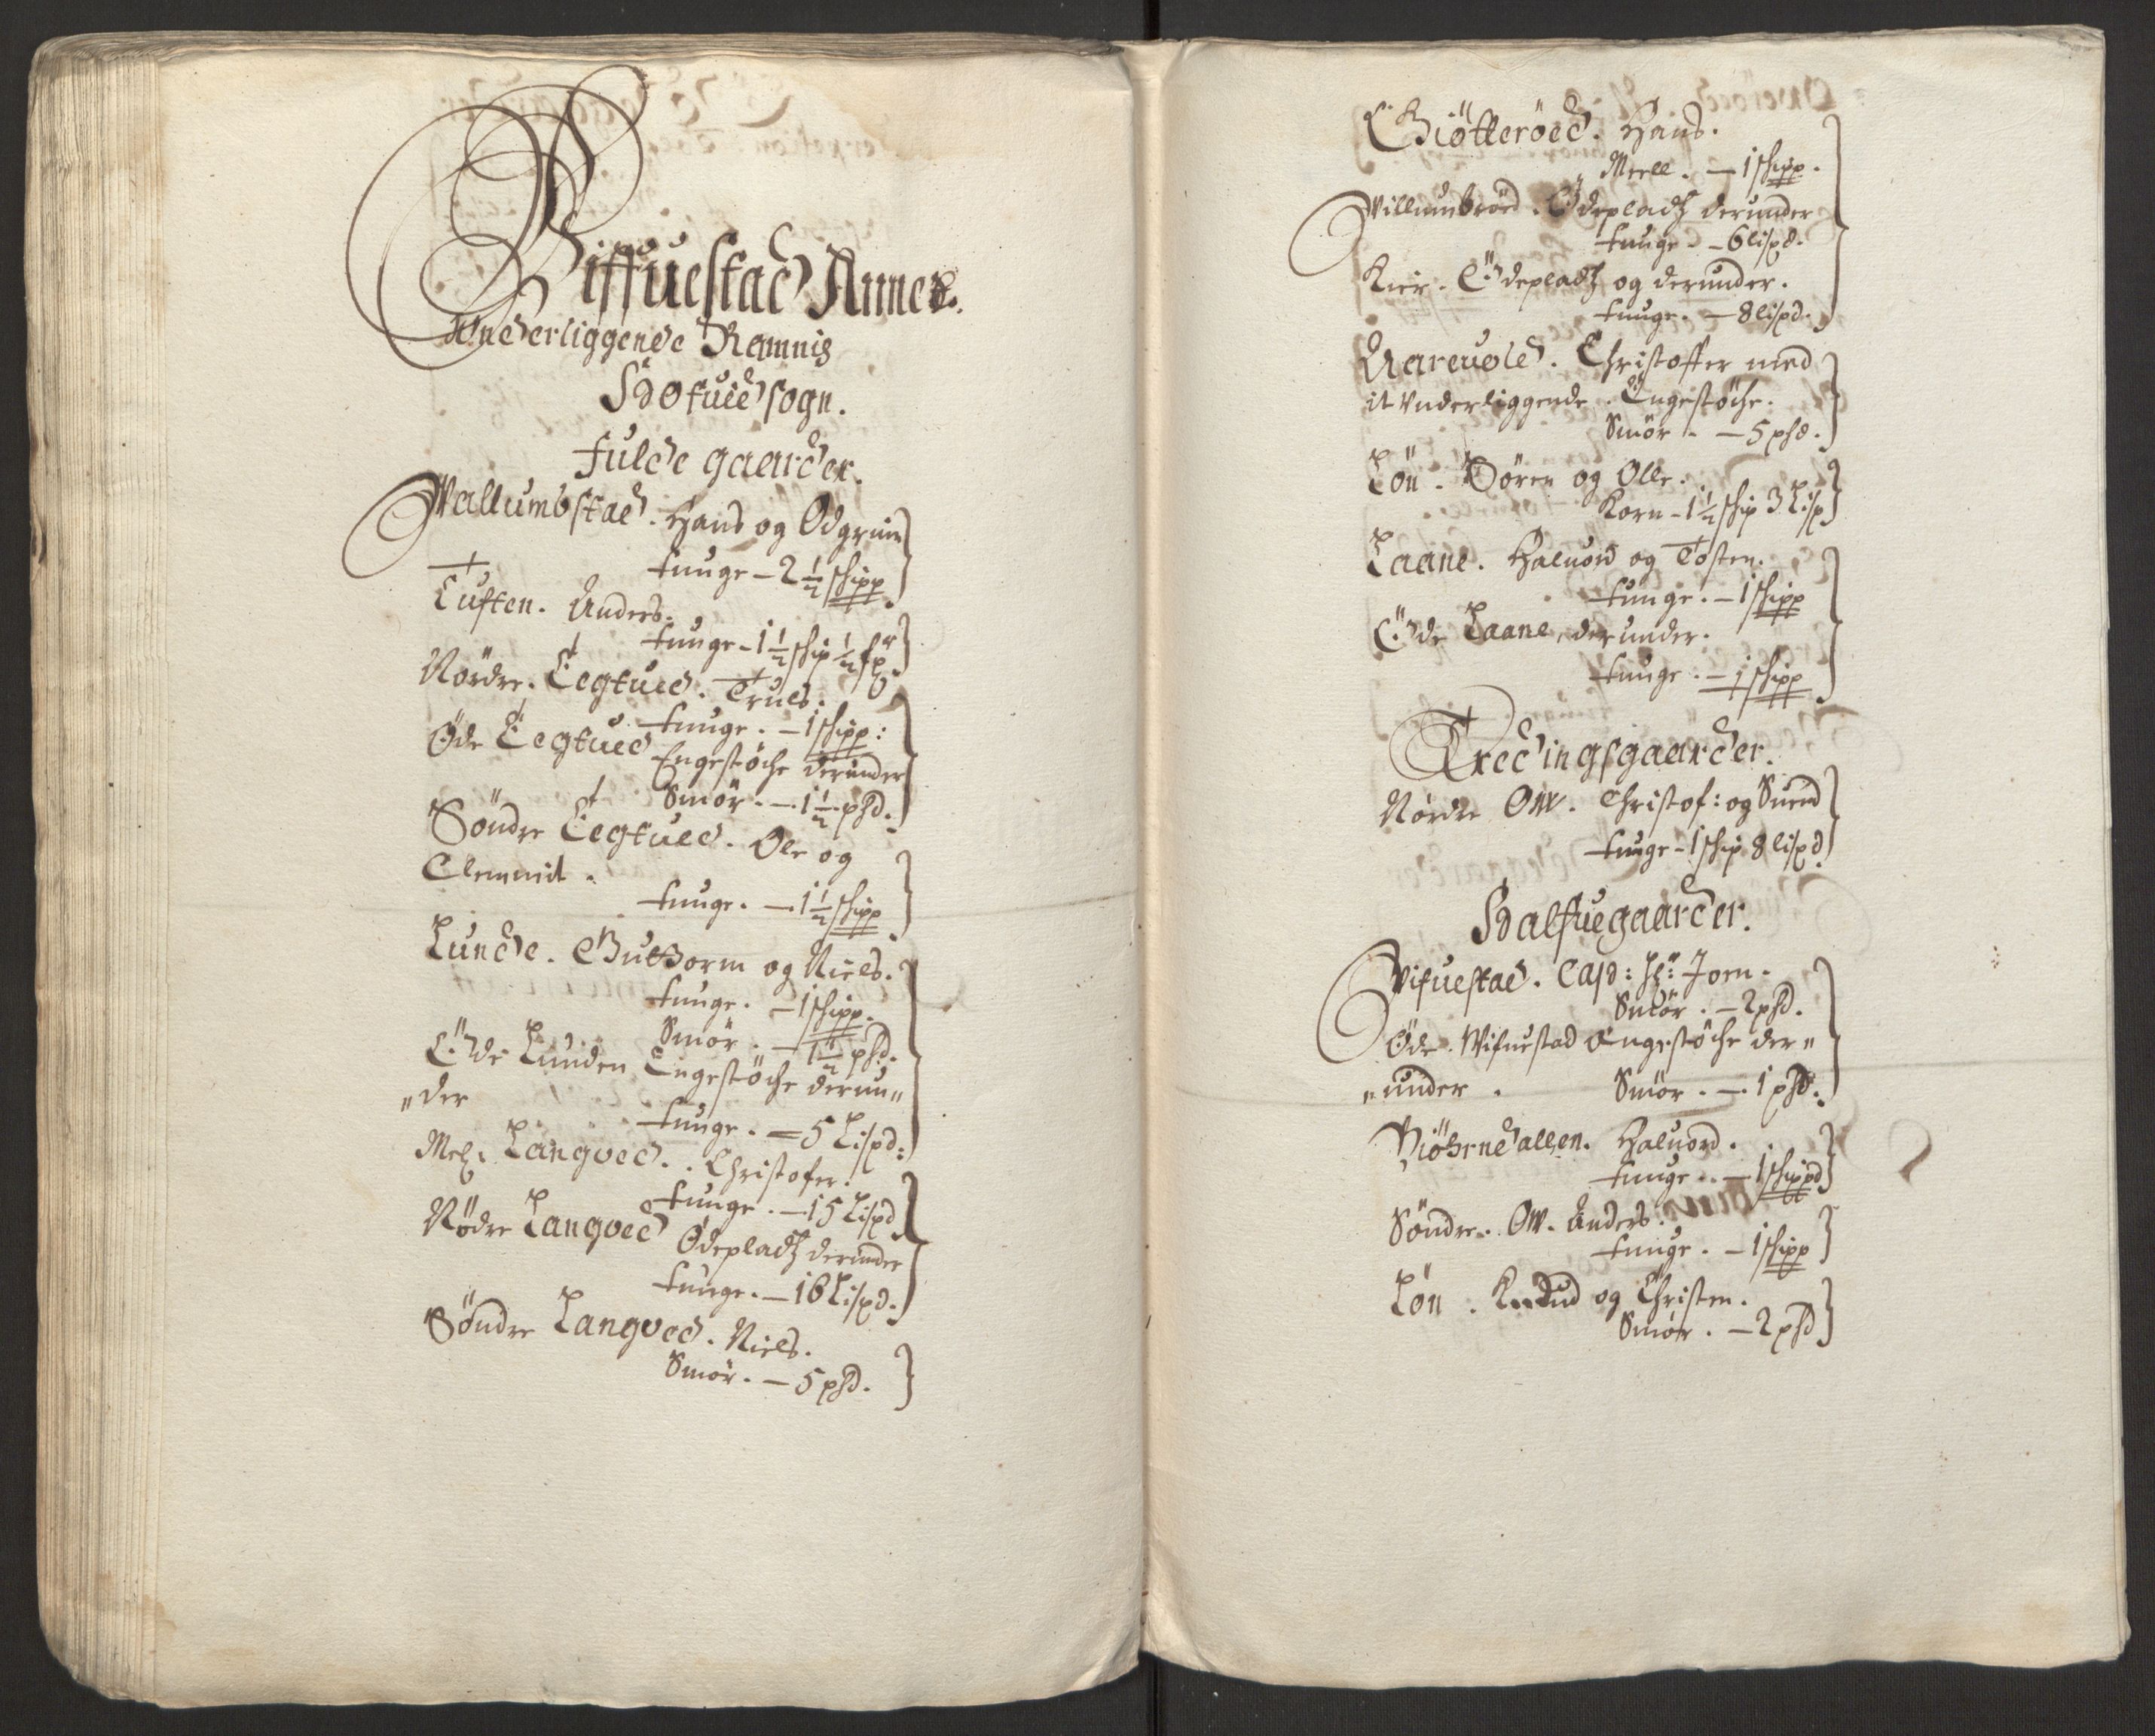 Wiffuestad Annex.
Underliggende Ramnis
Hofuid sogn.
Fulde gaarder.
Wallumbstad. Hans og Odgrim
tunge - 2 1/2 schipp
Tuften. Anders.
tunge - 1 1/2 schip 1/2 f
Nördre. Eegtued. Truels.
tunge. - 1 schipp:
Öde Eegtued Engestöche derunder
Smör. - 1 1/2 phd.
Söndre Eegtued. Ole og
Clemmit.
tunge. - 1 1/2 schipp
Lunde. Gutborm og Niels.
tunge. - 1 schipp.
Smör. - 1 1/2 phd.
Öde Lunden Engestöche derun„
„der
tunge. - 5 Lispd:
Mel. Langved. Christofer.
tunge. - 15 Lispd
Nödre Langved Ödepladtz derunder
tunge. - 16 Lispd.
Söndre Langved. Niels.
Smör. - 5 phd.
Giötteröed. Hans.
Meell. - 1 schipp.
Willumbröd. Ödepladtz derunder
tunge. - 6 lispd.
Kier. Ödepladtz og derunder.
tunge. - 8 lispd.
Aareuold. Christoffer med
it underliggende Engestöche.
Smör. - 5 phd.
Lön. Sören og Olle.
Korn - 1 1/2 schip 3 Lisp
Laane. Haluord og Tosten.
tunge. - 1 schipp
Öde Laane, derunder.
tunge. - 1 schipp
Tredingsgaarder.
Nördre Ow. Christof: og Suend
tunge - 1 schip 8 lispd
Halfuegaarder.
Wifuestad. Cap: Hr: Joen.
Smör. - 2 phd.
Öde. Wifuestad Engestöche der„
„under. Smör. - 1 phd.
Biörnedallen. Haluord.
tunge. - 1 schippd
Söndre. Ow. Anders.
tunge. - 1 schipp
Lön. Knud og Christen.
Smör. - 2 phd